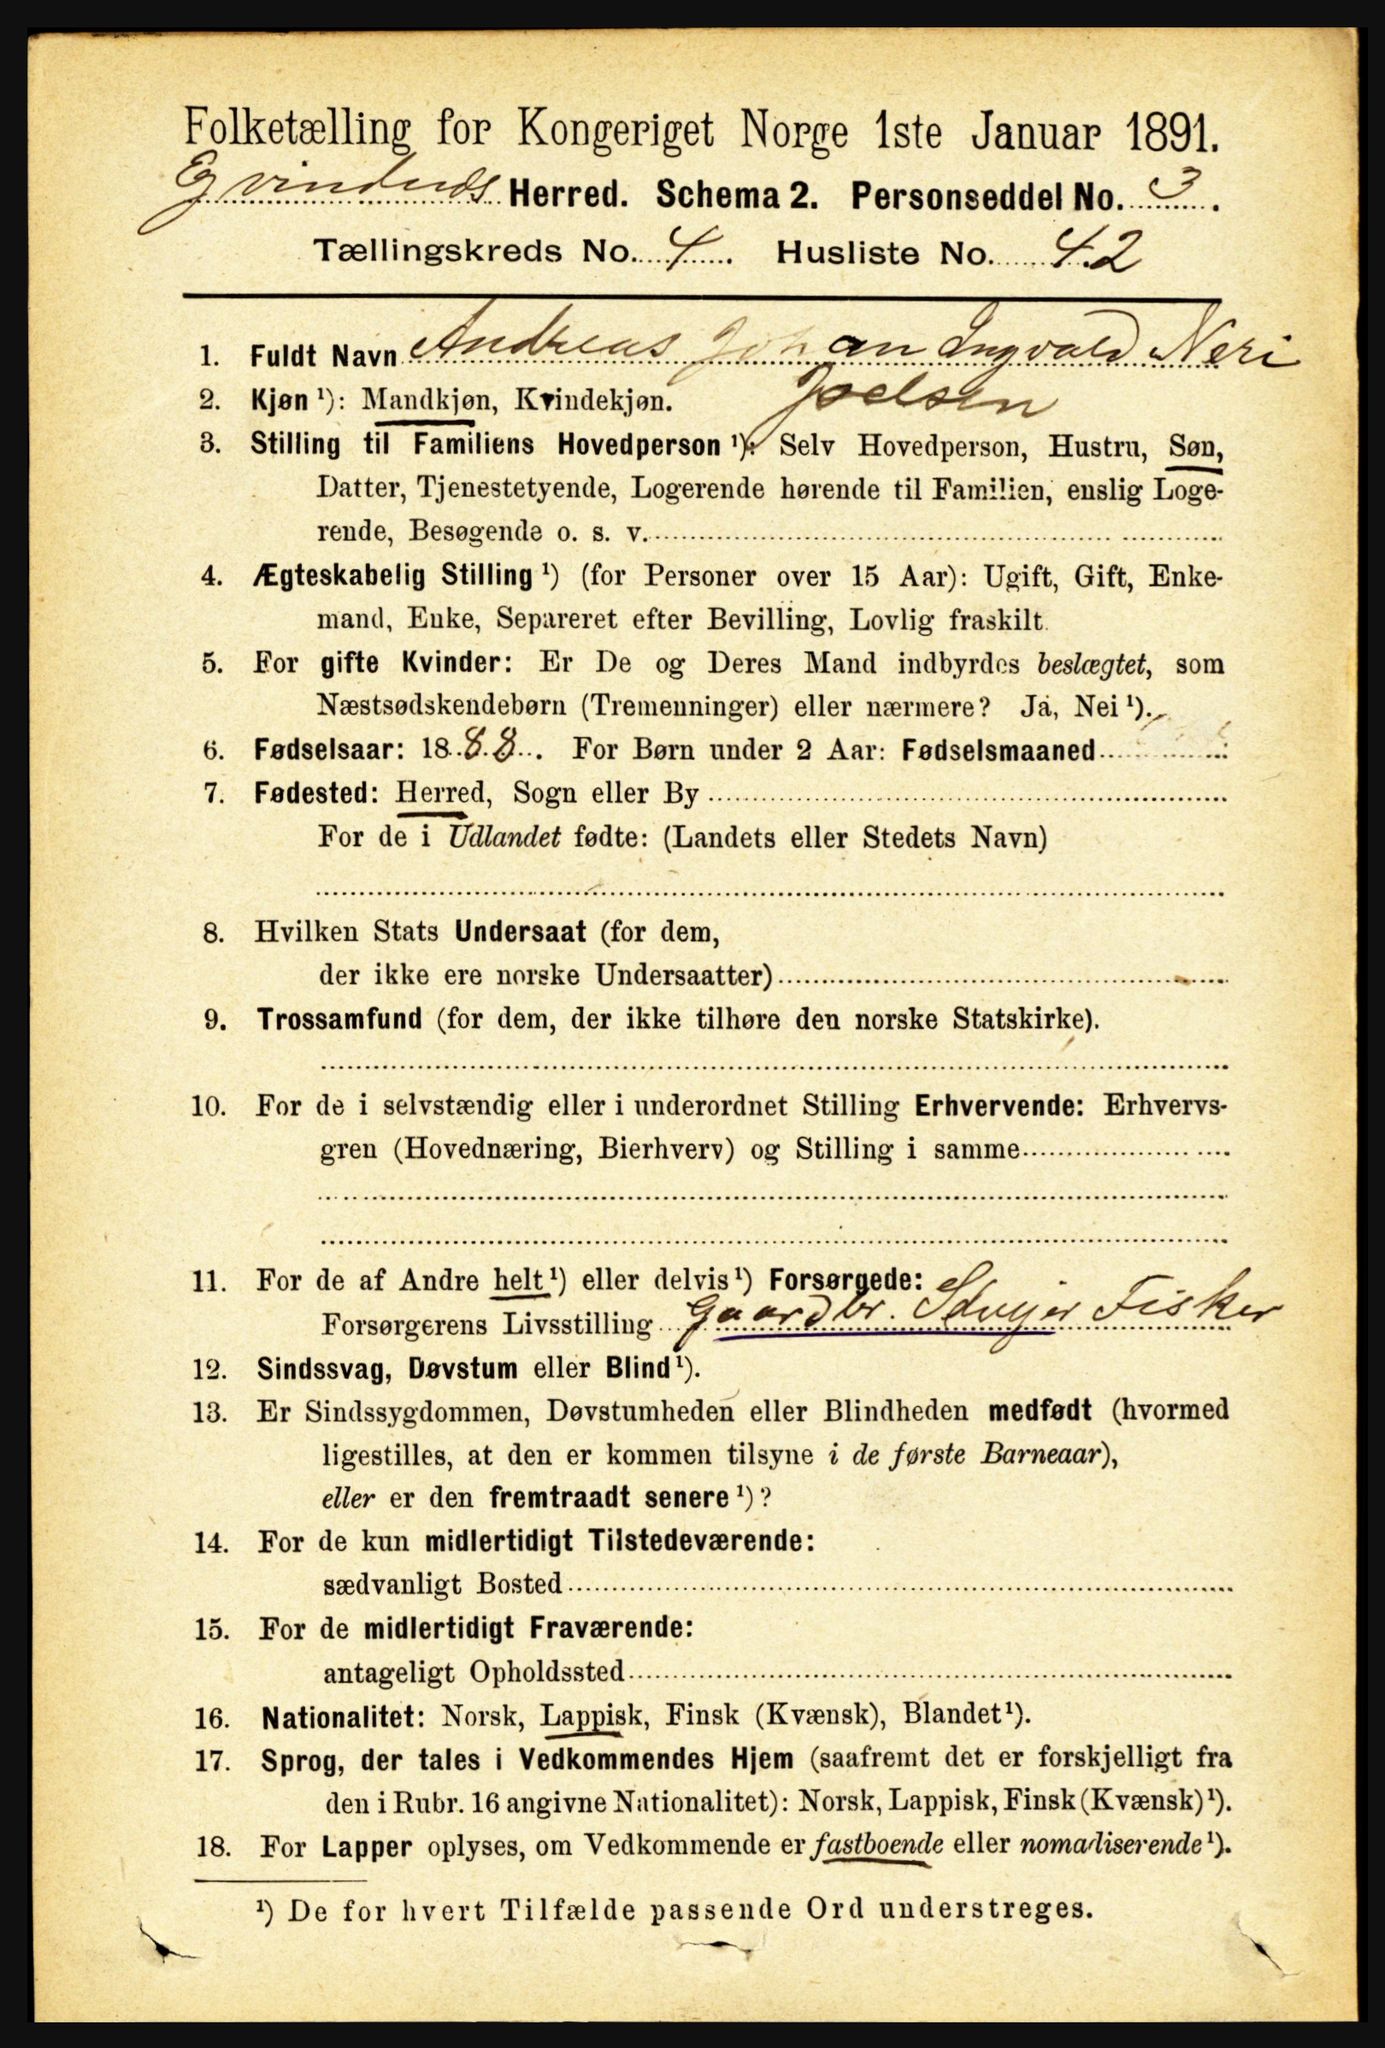 Folketælling for Kongeriget Norge 1ste Januar 1891.
Herred. Schema 2. Personseddel No. 3.
Tællingskreds No. 4. Husliste No. 42
1. Fuldt Navn Andreas Johan Ingvald Neri
Joelsen
2. Kjøn ¹): Mandkjøn, Kvindekjøn.
3. Stilling til Familiens Hovedperson ¹): Selv Hovedperson, Hustru, Søn,
Datter, Tjenestetyende, Logerende hørende til Familien, enslig Loge-
rende, Besøgende o. s. v.
4. Ægteskabelig Stilling ¹) (for Personer over 15 Aar): Ugift, Gift, Enke-
mand, Enke, Separeret efter Bevilling, Lovlig fraskilt.
5. For gifte Kvinder: Er De og Deres Mand indbyrdes beslægtet, som
Næstsødskendebørn (Tremenninger) eller nærmere? Ja, Nei ¹).
6. Fødselsaar: 1888. For Børn under 2 Aar: Fødselsmaaned
7. Fødested: Herred, Sogn eller By
For de i Udlandet fødte: (Landets eller Stedets Navn)
8. Hvilken Stats Undersaat (for dem,
der ikke ere norske Undersaatter)
9. Trossamfund (for dem, der ikke tilhøre den norske Statskirke).
10. For de i selvstændig eller i underordnet Stilling Erhvervende: Erhvervs-
gren (Hovednæring, Bierhverv) og Stilling i samme
11. For de af Andre helt ¹) eller delvis ¹) Forsørgede:
Forsørgerens Livsstilling Gaardbr. Selvejer Fisker
12. Sindssvag, Døvstum eller Blind ¹).
13. Er Sindssygdommen, Døvstumheden eller Blindheden medfødt (hvormed
ligestilles, at den er kommen tilsyne i de første Barneaar),
eller er den fremtraadt senere ¹)?
14. For de kun midlertidigt Tilstedeværende:
sædvanligt Bosted
15. For de midlertidigt Fraværende:
antageligt Opholdssted
16. Nationalitet: Norsk, Lappisk, Finsk (Kvænsk), Blandet ¹).
17. Sprog, der tales i Vedkommendes Hjem (saafremt det er forskjelligt fra
den i Rubr. 16 angivne Nationalitet): Norsk, Lappisk, Finsk (Kvænsk) ¹).
18. For Lapper oplyses, om Vedkommende er fastboende eller nomadiserende ¹).
¹) De for hvert Tilfælde passende Ord understreges.